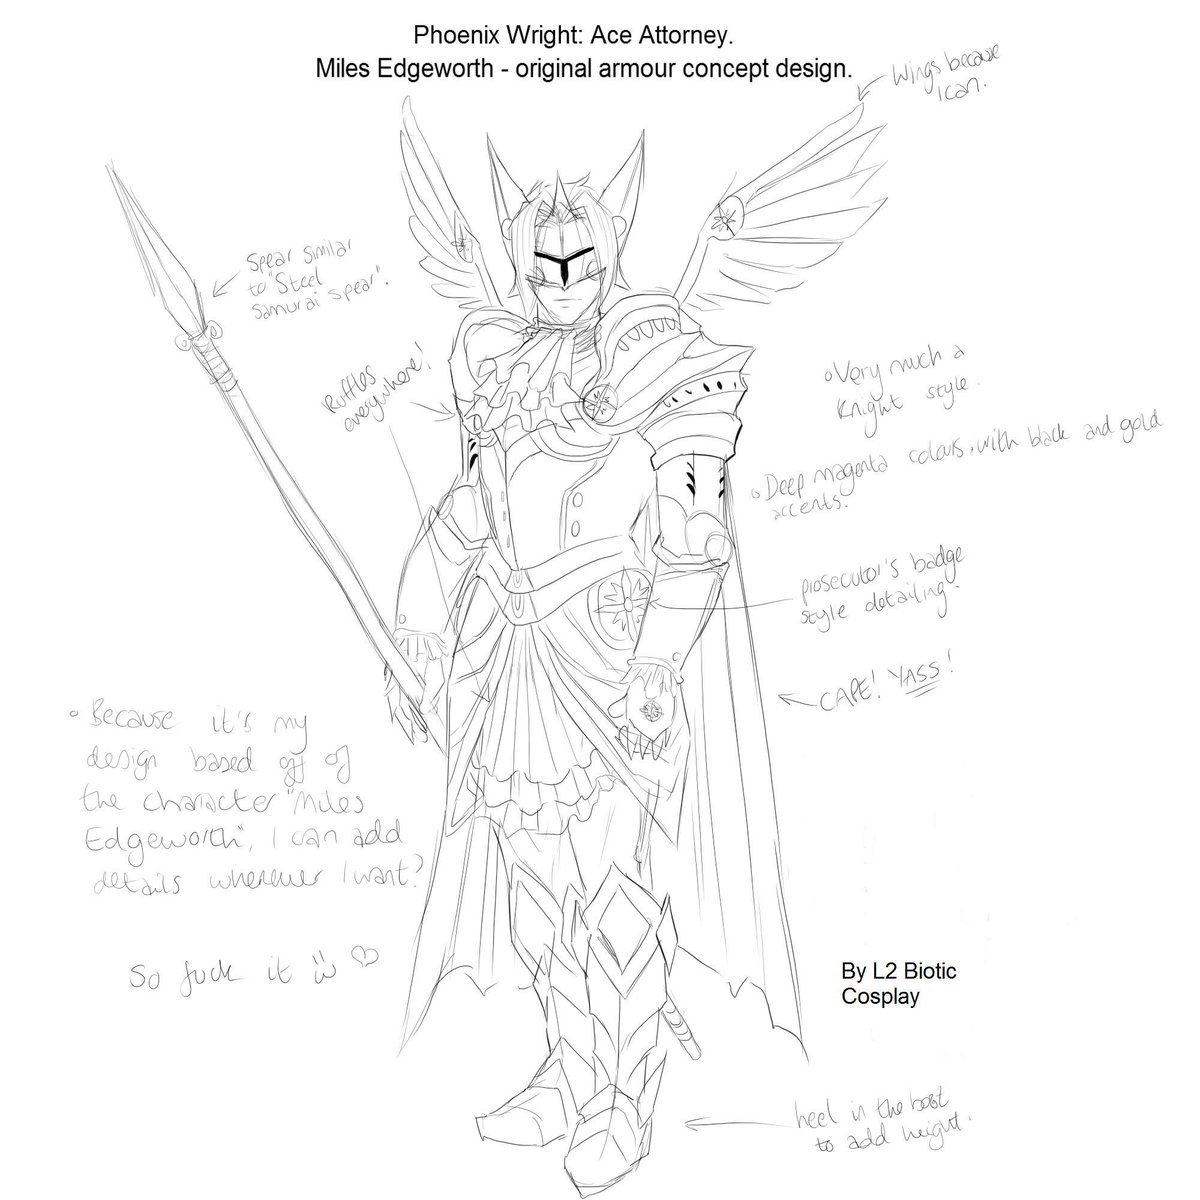 Phoenix Wright: Ace Attorney.
Miles Edgeworth - original armour concept design.
Wings because
I can.
Spear similar
to "Steel
Samurai spear".
Ruffles
everywhere!
Very much a
Knight style.
Deep magenta colours, with black and gold
accents.
prosecutor's badge
style detailing.
CAPE! YASS!
Because it's my
design based off of
the character "Miles
Edgeworth", I can add
details wherever I want?
So fuck it
By L2 Biotic
Cosplay
heel in the boot
to add height.